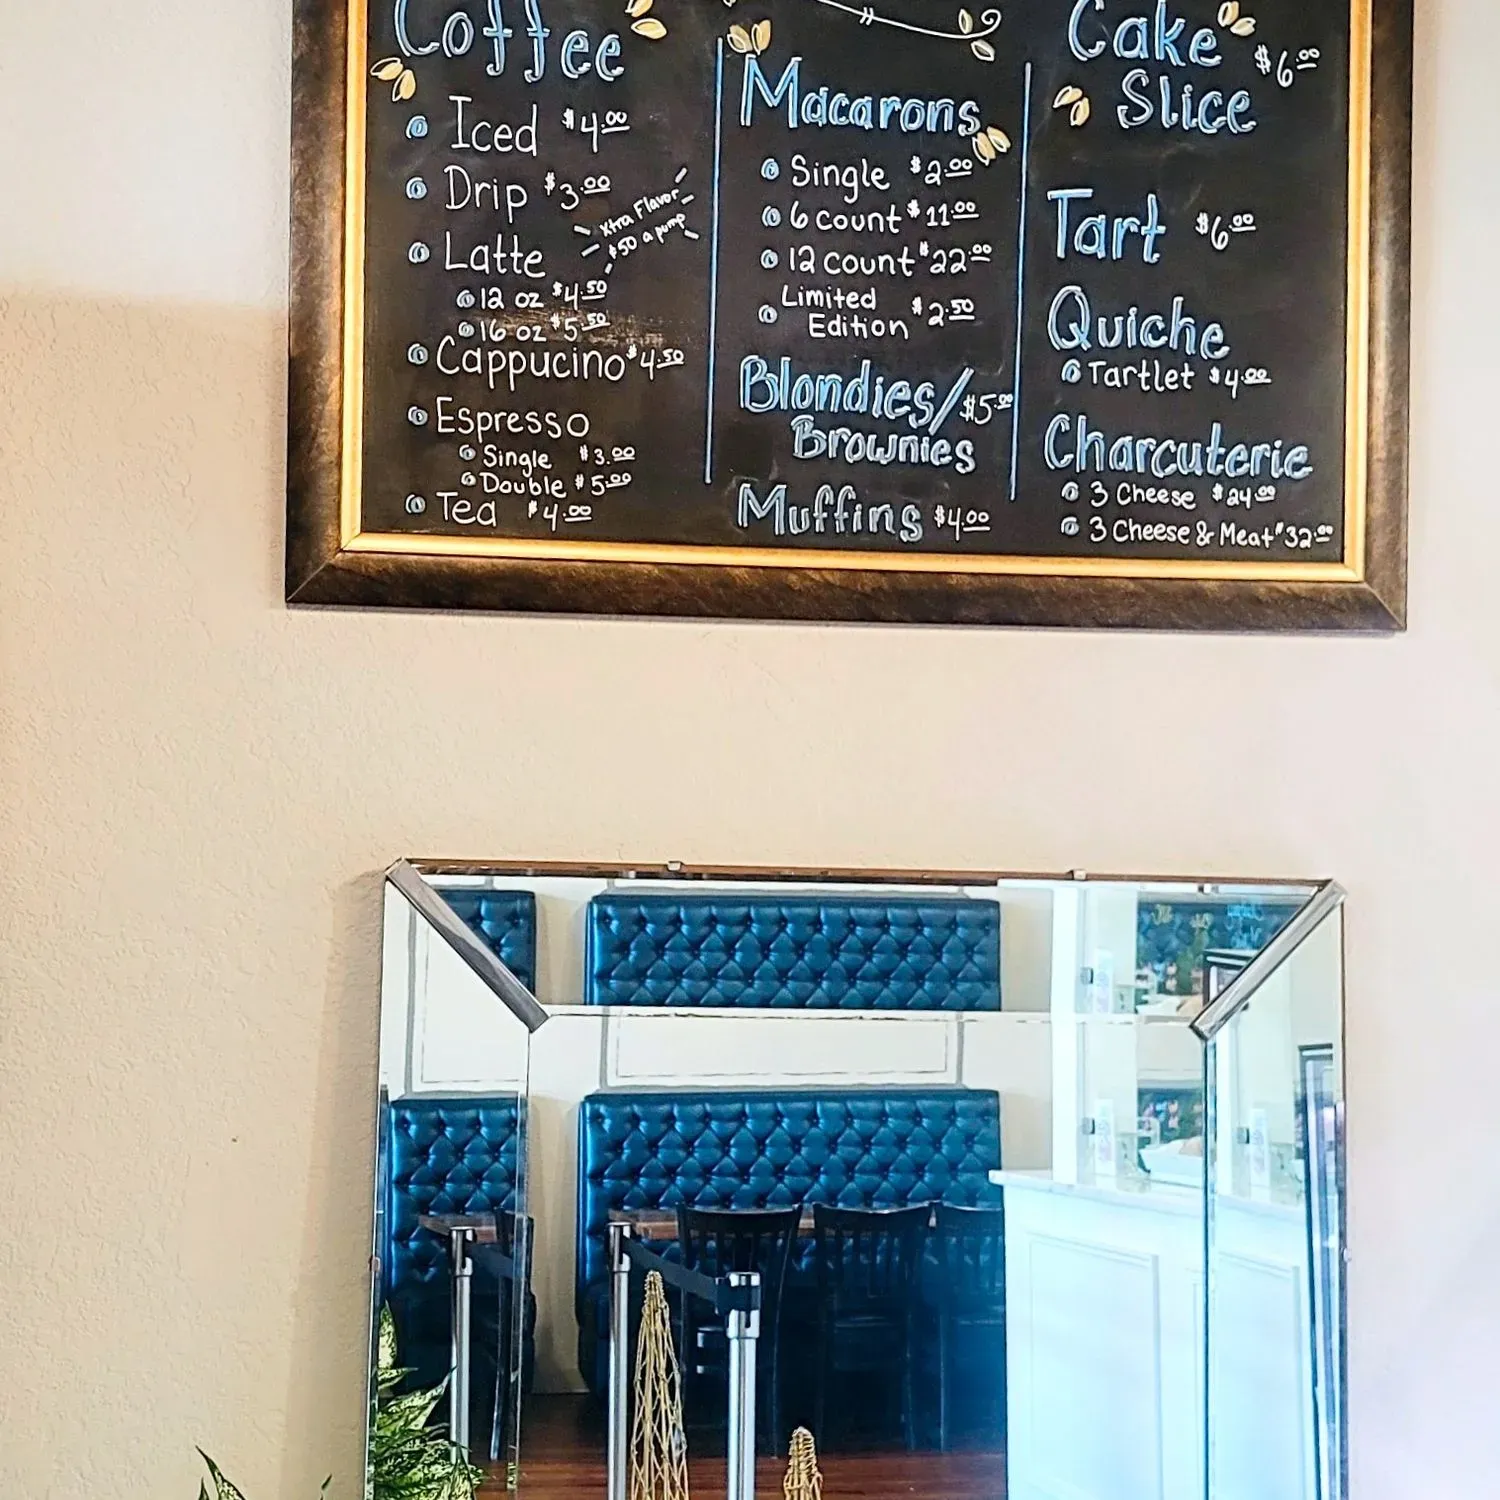 Coffee
Iced $4.00
Drip $3.00
Xtra Flavor
$.50 a pump
Latte
12 oz $4.50
16 oz $5.50
Cappucino $4.50
Espresso
Single $3.00
Double $5.00
Tea $4.00
Macarons
Single $2.00
6 count $11.00
12 count $22.00
Limited
Edition $2.50
Blondies/
Brownies $5.00
Muffins $4.00
Cake
Slice $6.00
Tart $6.00
Quiche
Tartlet $4.00
Charcuterie
3 Cheese $24.00
3 Cheese & Meat $32.00